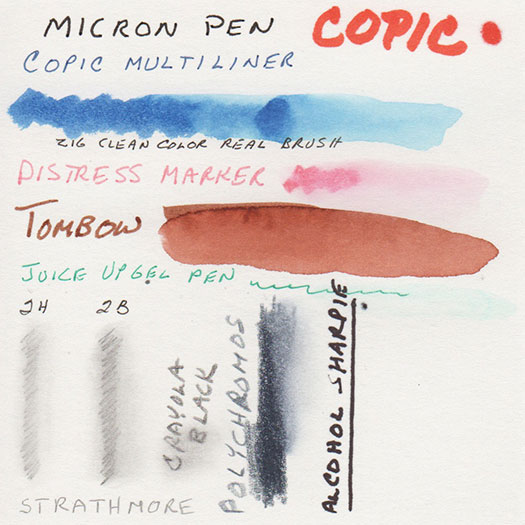 MICRON PEN
COPIC
COPIC MULTILINER
ZIG CLEAN COLOR REAL BRUSH
DISTRESS MARKER
TOMBOW
JUICE UP GEL PEN
2H
2B
CRAYOLA
BLACK
POLYCHROMOS
ALCOHOL SHARPIE
STRATHMORE